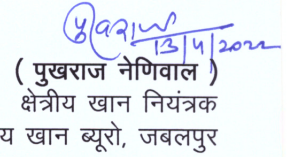 13/4/2022
( पुखराज नेणिवाल )
क्षेत्रीय खान नियंत्रक
य खान ब्यूरो, जबलपुर